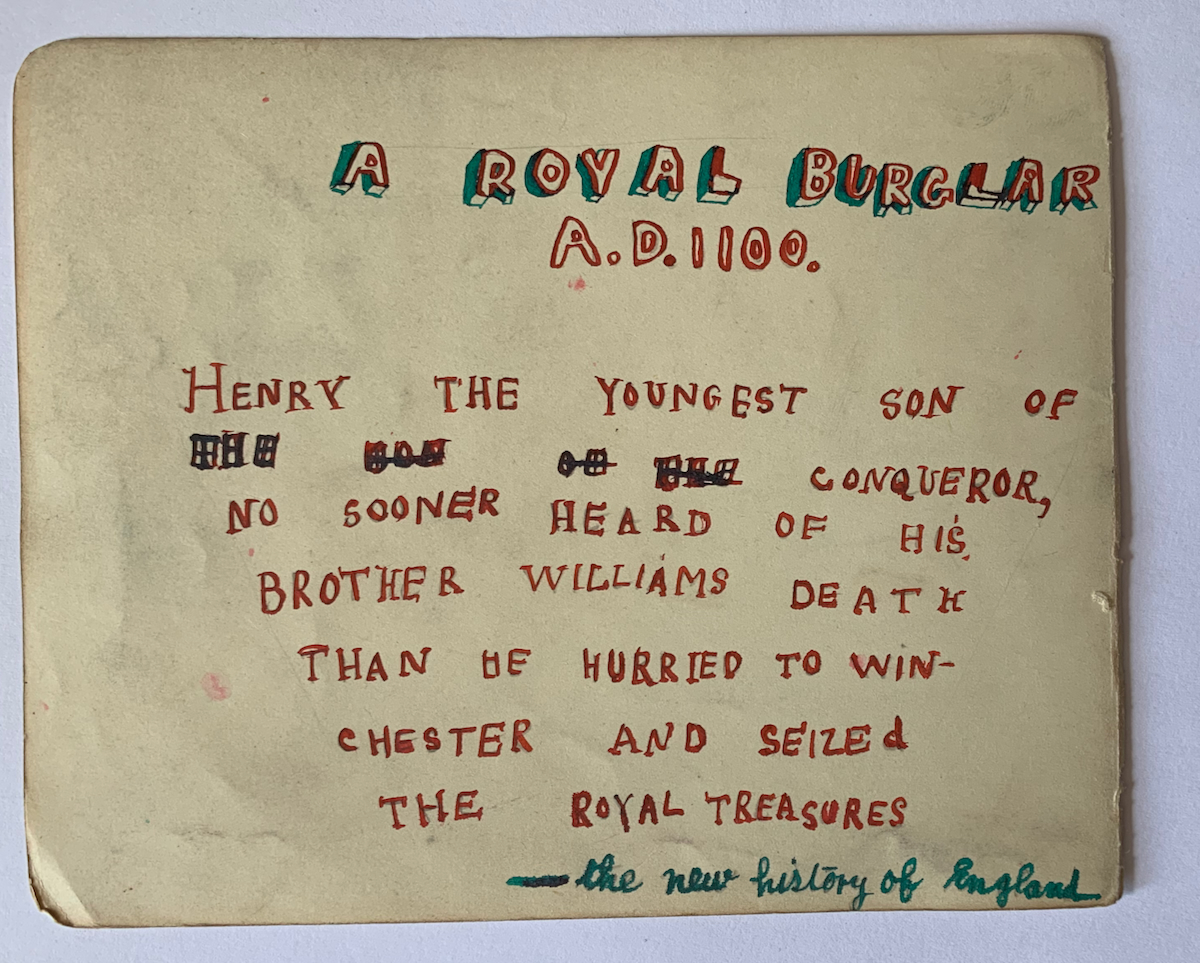 A ROYAL BURGLAR
A.D. 1100.
HENRY THE YOUNGEST SON OF
CONQUEROR,
NO SOONER HEARD OF HIS
BROTHER WILLIAMS DEATH
THAN HE HURRIED TO WIN-
CHESTER AND SEIZEd
THE ROYAL TREASURES
— the new history of England